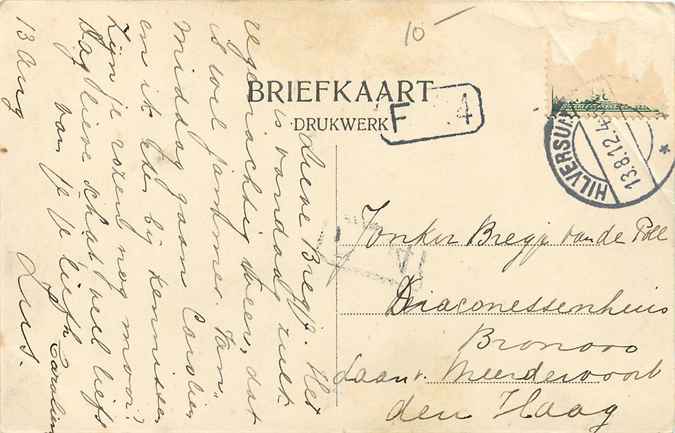 10-
BRIEFKAART
DRUKWERK
F 4
HILVERSUM
13.8.12.4
Lieve Bregje. Het
is vandaag zulk
regenachtig weer, dat
is wel jammer. Van
middag gaan Carolien
en ik bij kennissen
Zijn je rozen nog mooi?
Dag lieve schat veel liefs
van je liefh. Carolien
13 Aug
Jonkvr Bregje van de Poll
Diaconessenhuis
Bronovo
Laan v. Meerdervoort
den Haag